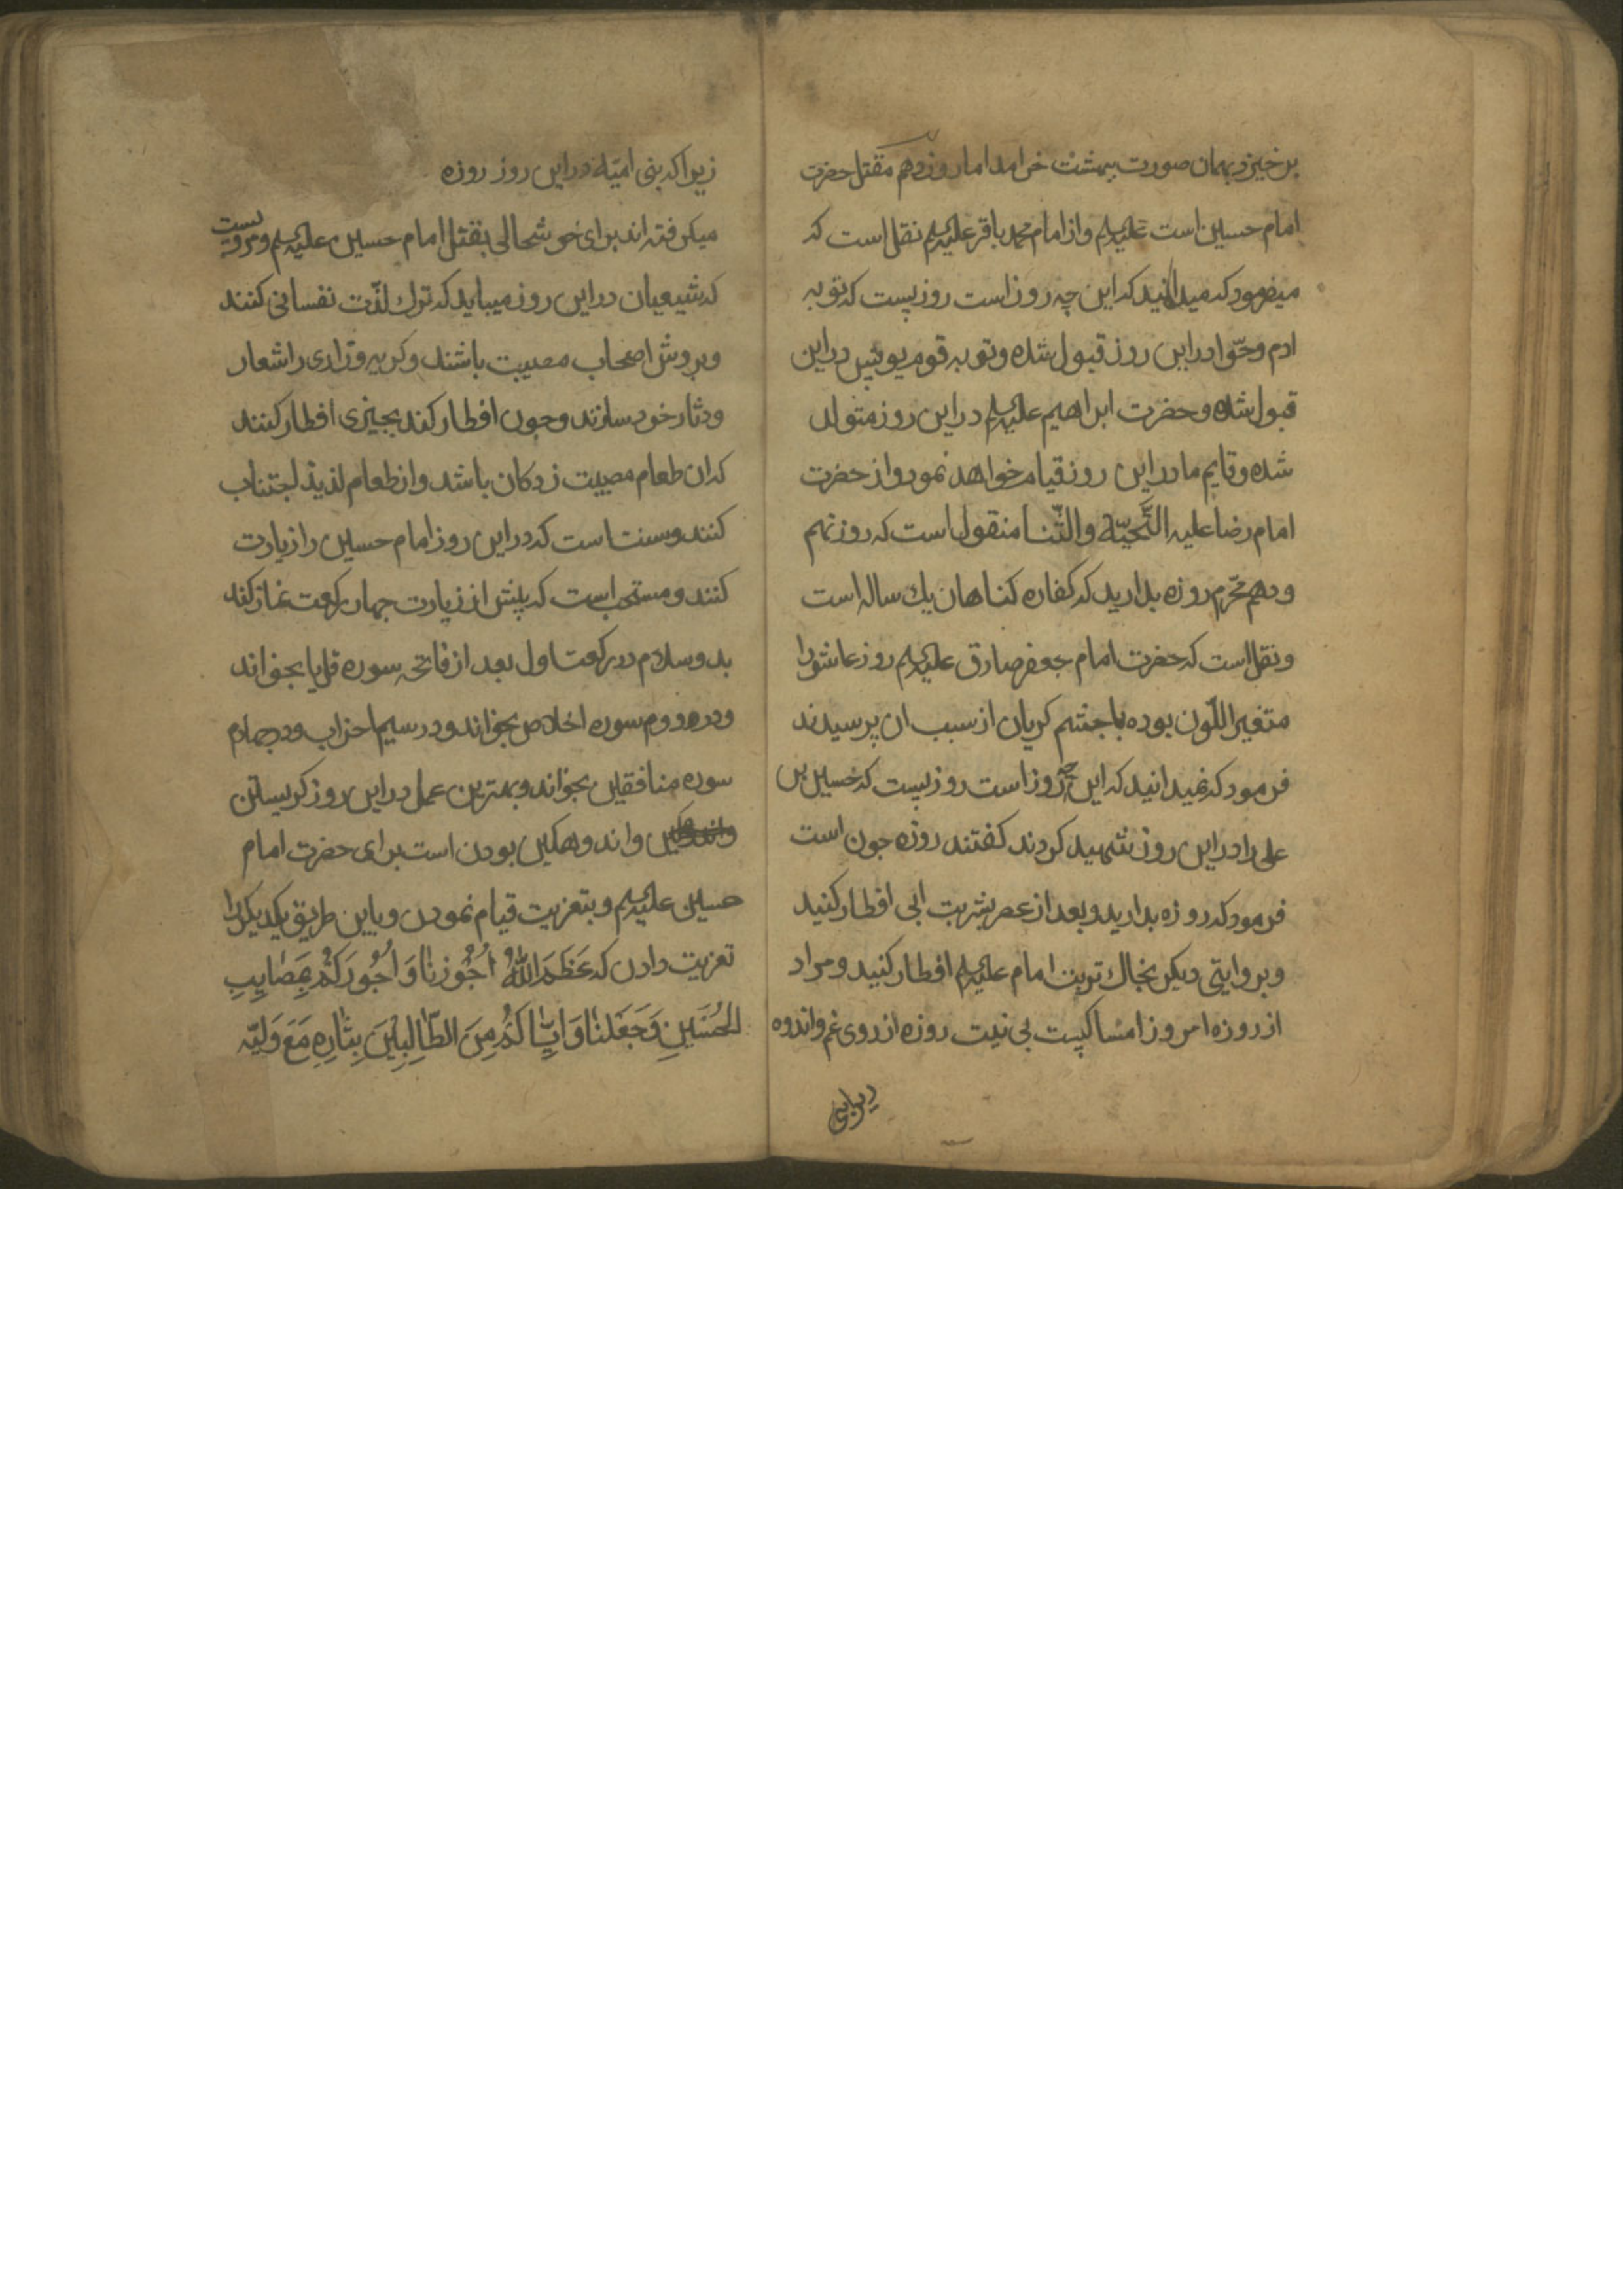 برخیزد بهمان صورت ببهشت خرامد اما روز دهم مقتل حضرت
امام حسین است علیه‌السلم و از امام محمد باقر علیه‌السلم نقل است که
میفرمود که میدانید که این چه روز است روزیست که توبه
ادم و حوّا در این روز قبول شده و توبه قوم یونس در این
قبول شده و حضرت ابراهیم علیه‌السلم در این روز متولد
شده و قایم ما در این روز قیام خواهد نمود و از حضرت
امام رضا علیه التّحیّة والثّنا منقول است که روز نهم
و دهم محرّم روزه بدارید که کفاره کناهان یك ساله است
و نقل است که حضرت امام جعفر صادق علیه‌السلم روز عاشورا
متغیر اللّون بوده با جشم کریان از سبب ان پرسیدند
فرمود که نمیدانید که این چه روز است روزیست که حسین بن
علی را در این روز شهید کردند کفتند روزه جون است
فرمود که روزه بدارید و بعد از عصر بشربت ابی افطار کنید
و بروایتی دیکر بخاك تربت امام علیه‌السلم افطار کنید و مراد
از روزه امروز امساکیست بی نیت روزه از روی غم و اندوه
زیرا که بنی امیّة در این روز روزه
میکرفته اند برای خوشحالی بقتل امام حسین علیه‌السلم و مرویست
که شیعیان در این روز میباید که ترك لذّت نفسانی کنند
و بروش اصحاب مصیبت باشند و کریه و زاری را شعار
و دثار خود سازند و جون افطار کنند بجیزی افطار کنند
که ان طعام مصیبت زدکان باشد و از طعام لذیذ اجتناب
کنند و سنت است که در این روز امام حسین را زیارت
کنند و مستحب است که پیش از زیارت جهار رکعت نماز کند
بدو سلام در رکعت اول بعد از فاتحه سوره قل یا بخواند
و در دوم سوره اخلاص بخواند و در سیم احزاب و در جهارم
سوره منافقین بخواند و بهترین عمل در این روز کریستن
و اندوهکین بودن است برای حضرت امام
حسین علیه‌السلم و بتعزیت قیام نمودن و باین طریق یکدیکر را
تعزیت دادن که عَظَّمَ اللّٰهُ اُجُوْرَنَا وَ اُجُورَكُمْ بِمَصَایِبِ
الحُسَینِ وَجَعَلَنَا وَ اِیَّاكُمْ مِنَ الطَّالِبِیْنَ بِثَارِهِ مَعَ وَلِیِّه